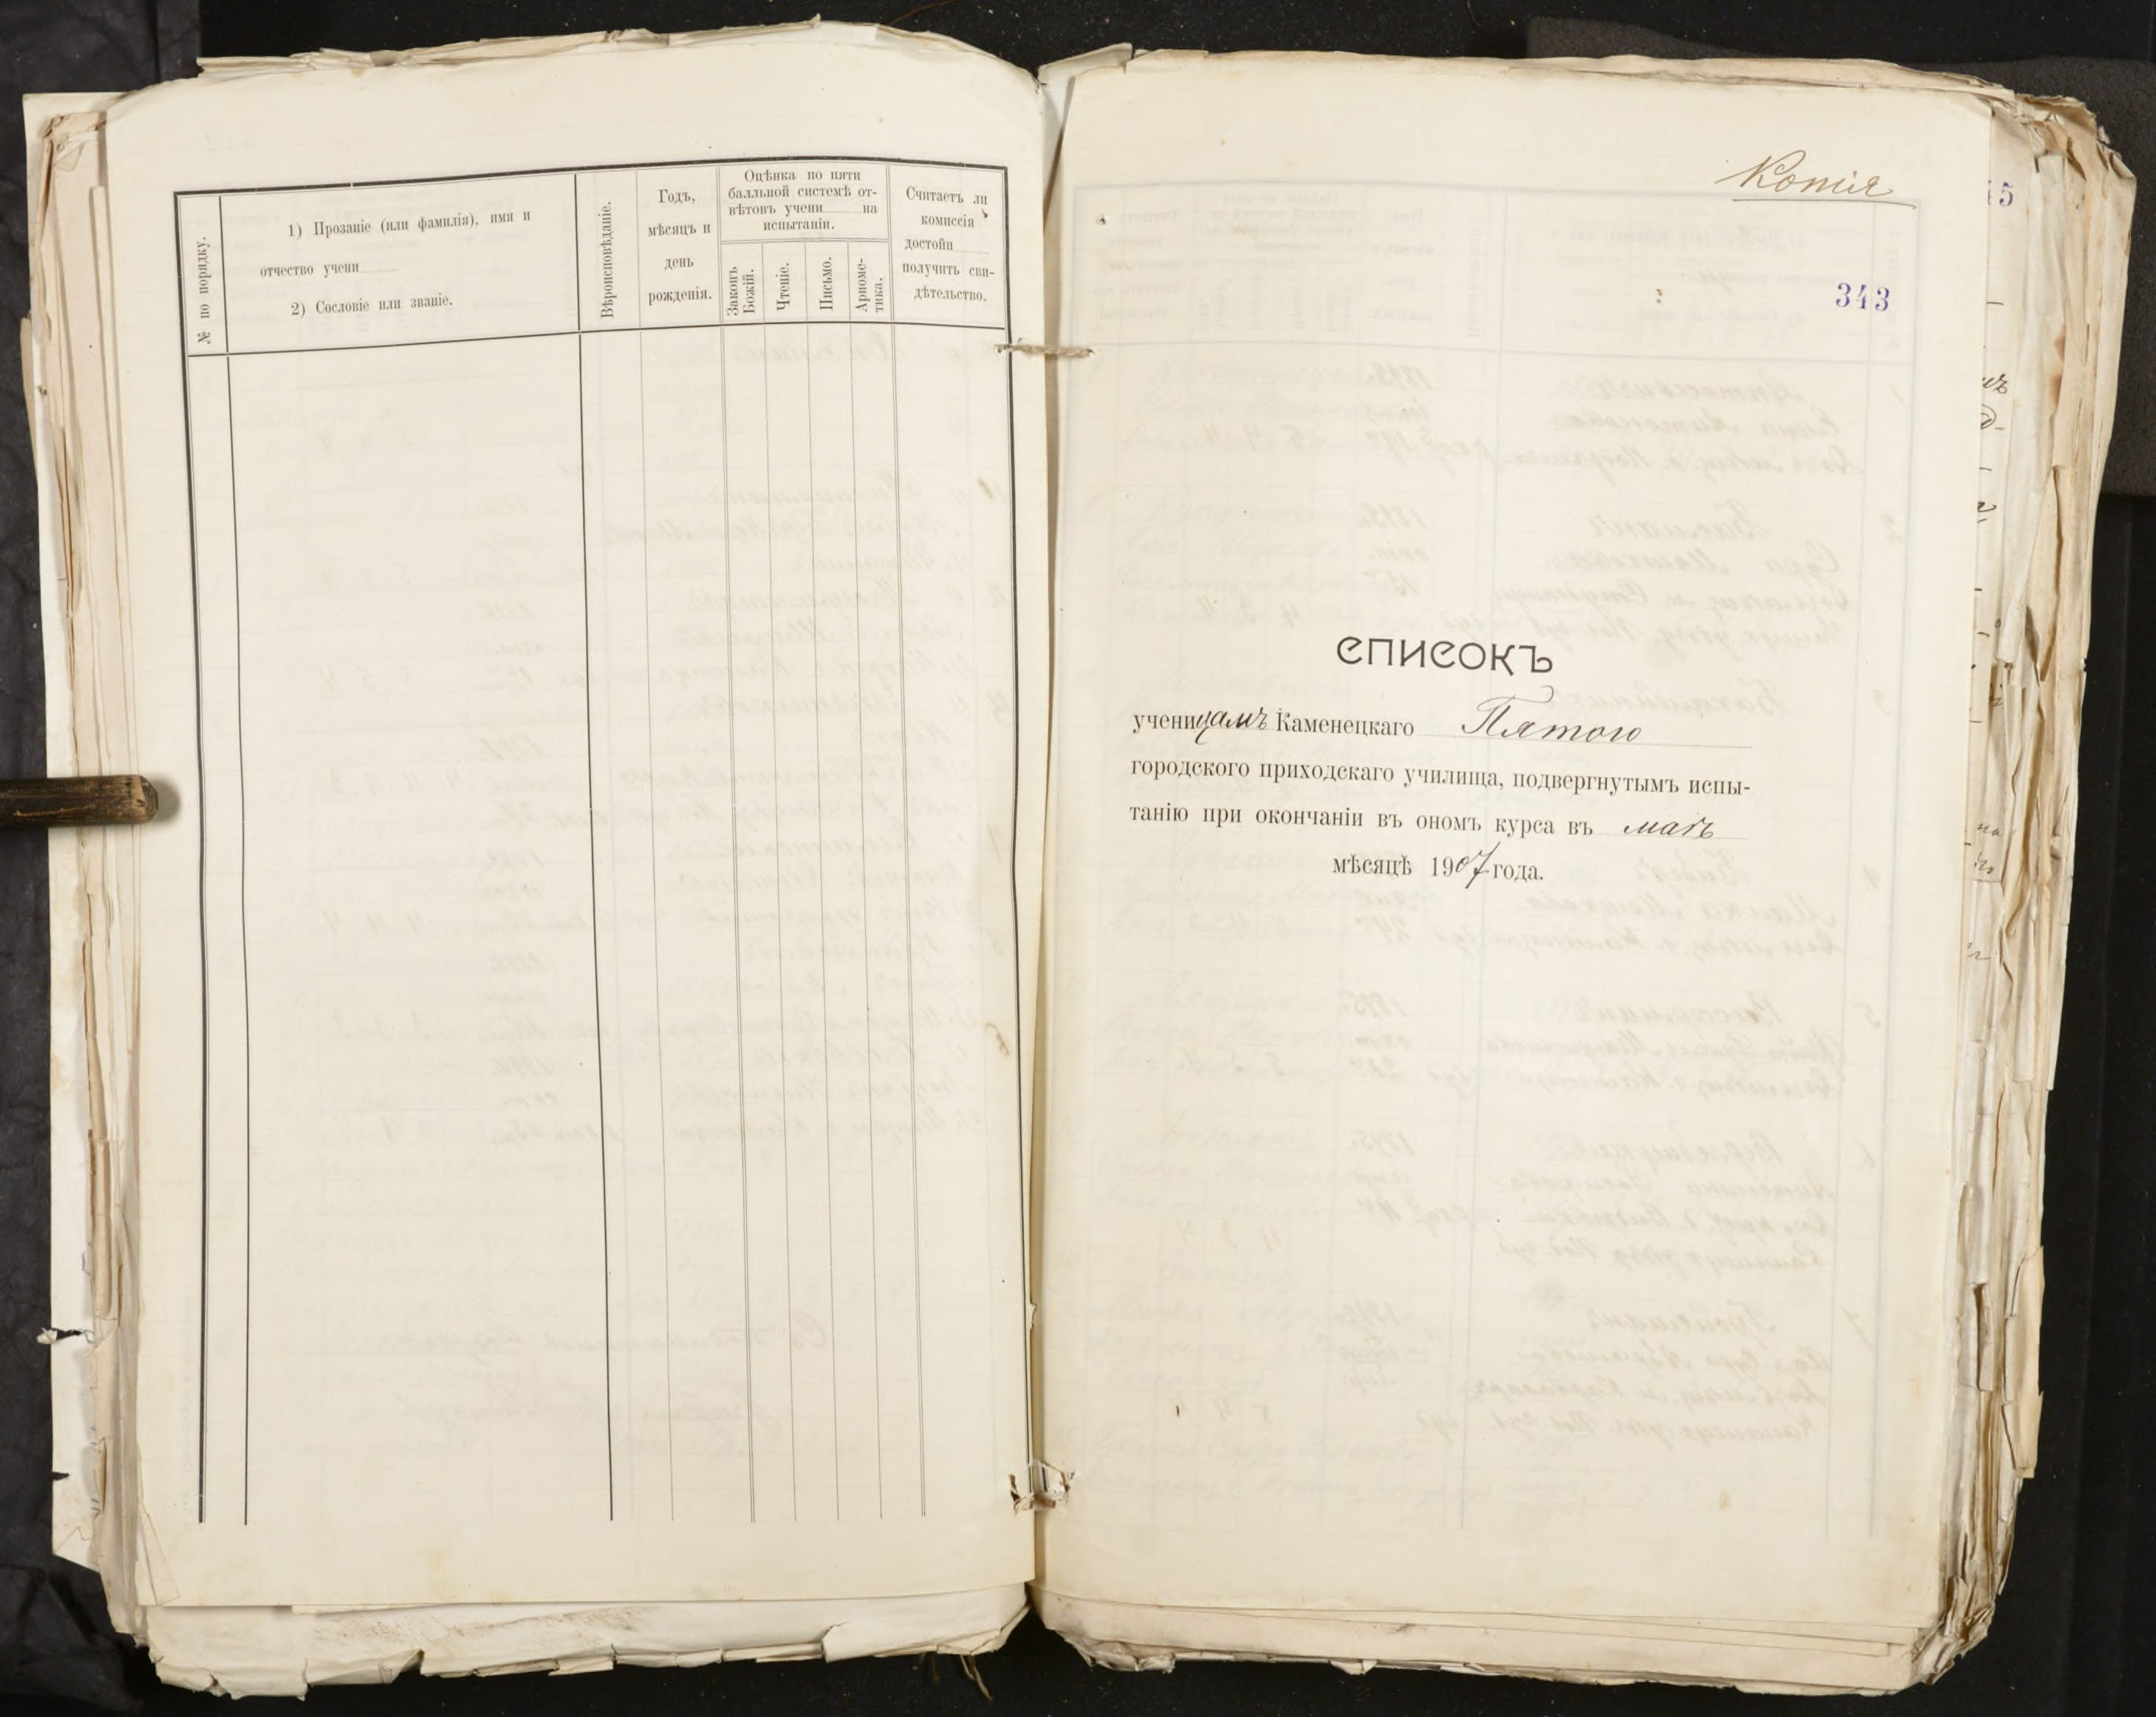 № по порядку.
1) Прозаніе (или фамилія), имя и
отчество учени
2) Сословіе или званіе.
Вѣроисповѣданіе.
Годъ,
мѣсяцъ и
день
рожденія.
Оцѣнка по пяти
балльной системѣ от-
вѣтовъ учени на
испытаніи.
Законъ
Божій.
Чтеніе.
Письмо.
Ариѳме-
тика.
Считаетъ ли
комиссія
достойн
получить сви-
дѣтельство.
Копія
343
СПИСОКЪ
ученицамъ Каменецкаго Пятого
городского приходскаго училища, подвергнутымъ испы-
танію при окончаніи въ ономъ курса въ маѣ
мѣсяцѣ 1907 года.